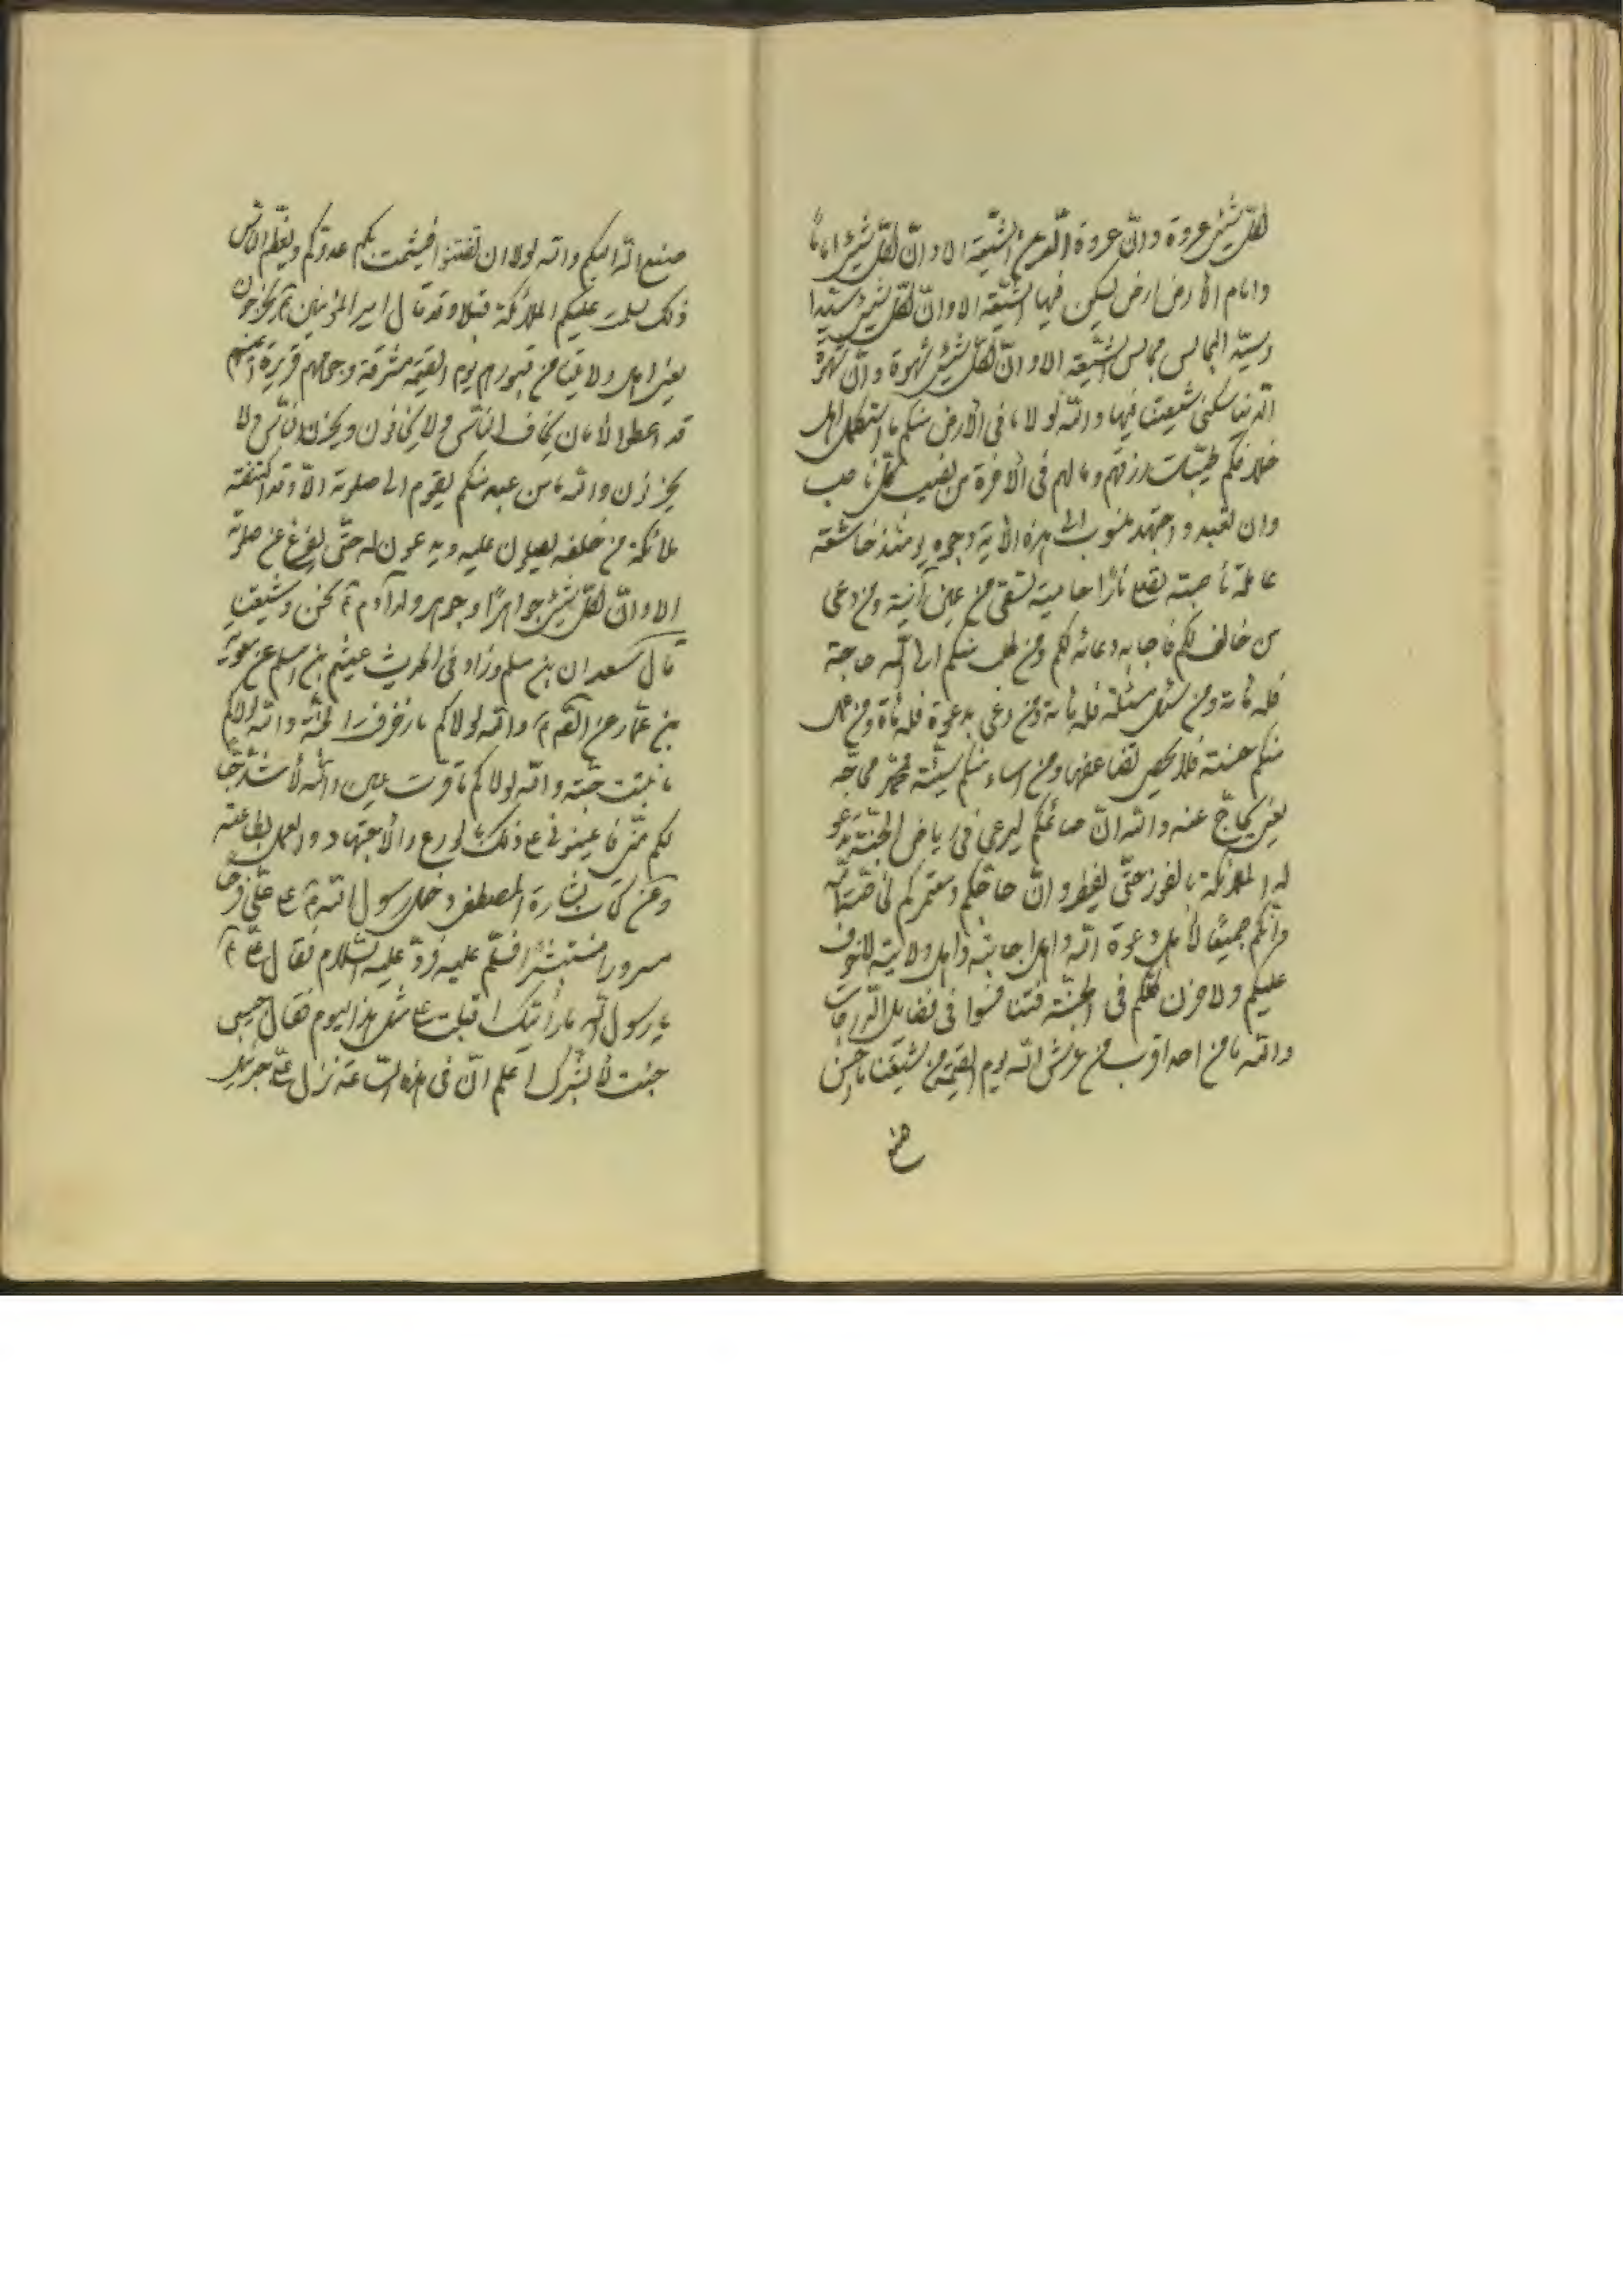 لكلّ شيئ عروة وانّ عروة الدّين الشّيعة الا وانّ لكلّ شيئ اماما
وامام الأرض ارض يسكن فيها الشّيعة الا وانّ لكلّ شيئ سيّدا
وسيّد المجالس مجالس الشّيعة الا وانّ لكلّ شيئ شهوة وانّ شهوة
الدنيا سكنى شيعتنا فيها والله لولا ما فى الأرض منكم ما استكمل اهل
خلافكم طيّبات رزقهم وما لهم فى الآخرة من نصيب كلّ ناصب
وان تعبد واجتهد منسوب الى هذه الآية وجوه يومئذ خاشعة
عاملة ناصبة تصلى نارًا حامية تسقى من عين آنية ومن دعى
من خالف لكم فاجابه دعائه لكم ومن طلب منكم الى الله حاجة
فله مائة ومن سئل مسئلة فله مائة ومن دعى بدعوة فله مائة ومن عمل
منكم حسنة فلا يحصى تضاعفها ومن اساء منكم سيئة فمحمّد محاجّه
يعنى يحاجّ عنه والله انّ صائمكم ليرعى فى رياض الجنّة تدعو
له الملائكة بالفوز حتّى يفطر وانّ حاجّكم ومعتمركم لخاصّة الله
وانّكم جميعًا لأهل دعوة الله واهل اجابته واهل ولايته لا خوف
عليكم ولا حزن كلّكم فى الجنّة فتنافسوا فى فضايل الدّرجات
والله ما من احد اقرب من عرش الله يوم القيمة من شيعتنا ما احسن
صنع
صنع الله اليكم والله لولا ان تفتنوا فيشمت بكم عدوّكم ويعظّم الناس
ذلك لسلمت عليكم الملائكة قبلا وقد قال امير المؤمنين ع يخرجون
يعنى اهل ولايتنا من قبورهم يوم القيمة مشرقة وجوههم قريرة اعينهم
قد اعطوا الأمان يخاف النّاس ولا يخافون ويحزن النّاس ولا
يحزنون والله ما من عبد منكم يقوم الى صلوته الّا وقد اكتنفته
ملائكة من خلفه يصلون عليه ويدعون له حتّى يفرغ من صلوته
الا وانّ لكلّ شيئ جواهرًا وجوهر ولد آدم ع نحن وشيعتنا
قال سعدان بن مسلم وزاد فى الحديث عيثم بن اسلم عن معوية
بن عمّار عن الصّادق ع والله لولاكم ما زخرفت الجنّة والله لولاكم
ما نبتت حبّة والله لولاكم ما قرت عين والله لأشدّ حبّا
لكم منّى فاعينونى على ذلك بالورع والأجتهاد والعمل بطاعته
وعن كتاب بشارة المصطفى دخل رسول الله ص على علىّ فرحًا
مسرورا مستبشرا فسلّم عليه فردّ عليه السّلام فقال علىّ ع
يا رسول الله ما رأيتك اقبلت علىّ مثل هذا اليوم فقال حبيبى
جئت لأبشّرك اعلم انّ فى هذه السّاعة نزل علىّ جبرئيل